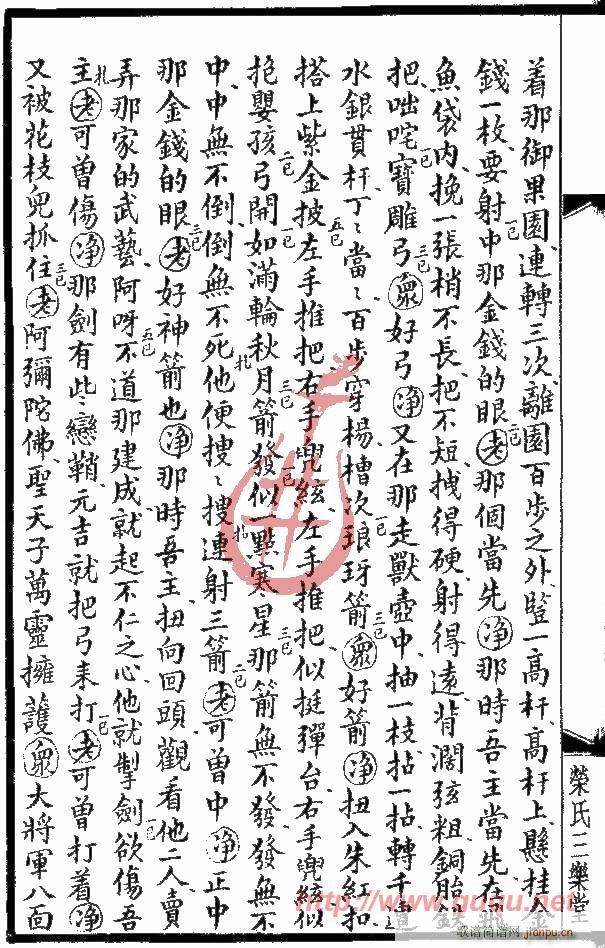 着那御果園連轉三次離園百步之外豎一高杆高杆上懸挂
錢一枚要射中那金錢的眼老那個當先净那時吾主當先在
魚袋内挽一張梢不長把不短拽得硬射得遠背濶弦粗銅胎
把咄咤寶雕弓衆好弓净又在那走獸壺中抽一枝拈一拈轉千
水銀貫杆丁丶當丶百步穿楊槽次琅玡箭衆好箭净扭入朱紅扣
搭上紫金披左手推把右手兜絃左手推把似挺彈台右手兜絃似
抱嬰孩弓開如滿輪秋月箭發似一點寒星那箭無不發發無不
中中無不倒倒無不死他便搜丶搜連射三箭老可曾中净正中
那金錢的眼老好神箭也净那時吾主扭向回頭觀看他二人賣
弄那家的武藝阿呀不道那建成就起不仁之心他就掣劍欲傷吾
主老可曾傷净那劍有些戀鞘元吉就把弓来打老可曾打着净
又被花枝兒抓住老阿彌陀佛聖天子萬靈擁護衆大將軍八面
榮氏三樂堂
http://www.gugu.net
歌谱简谱网 jianpu.cn